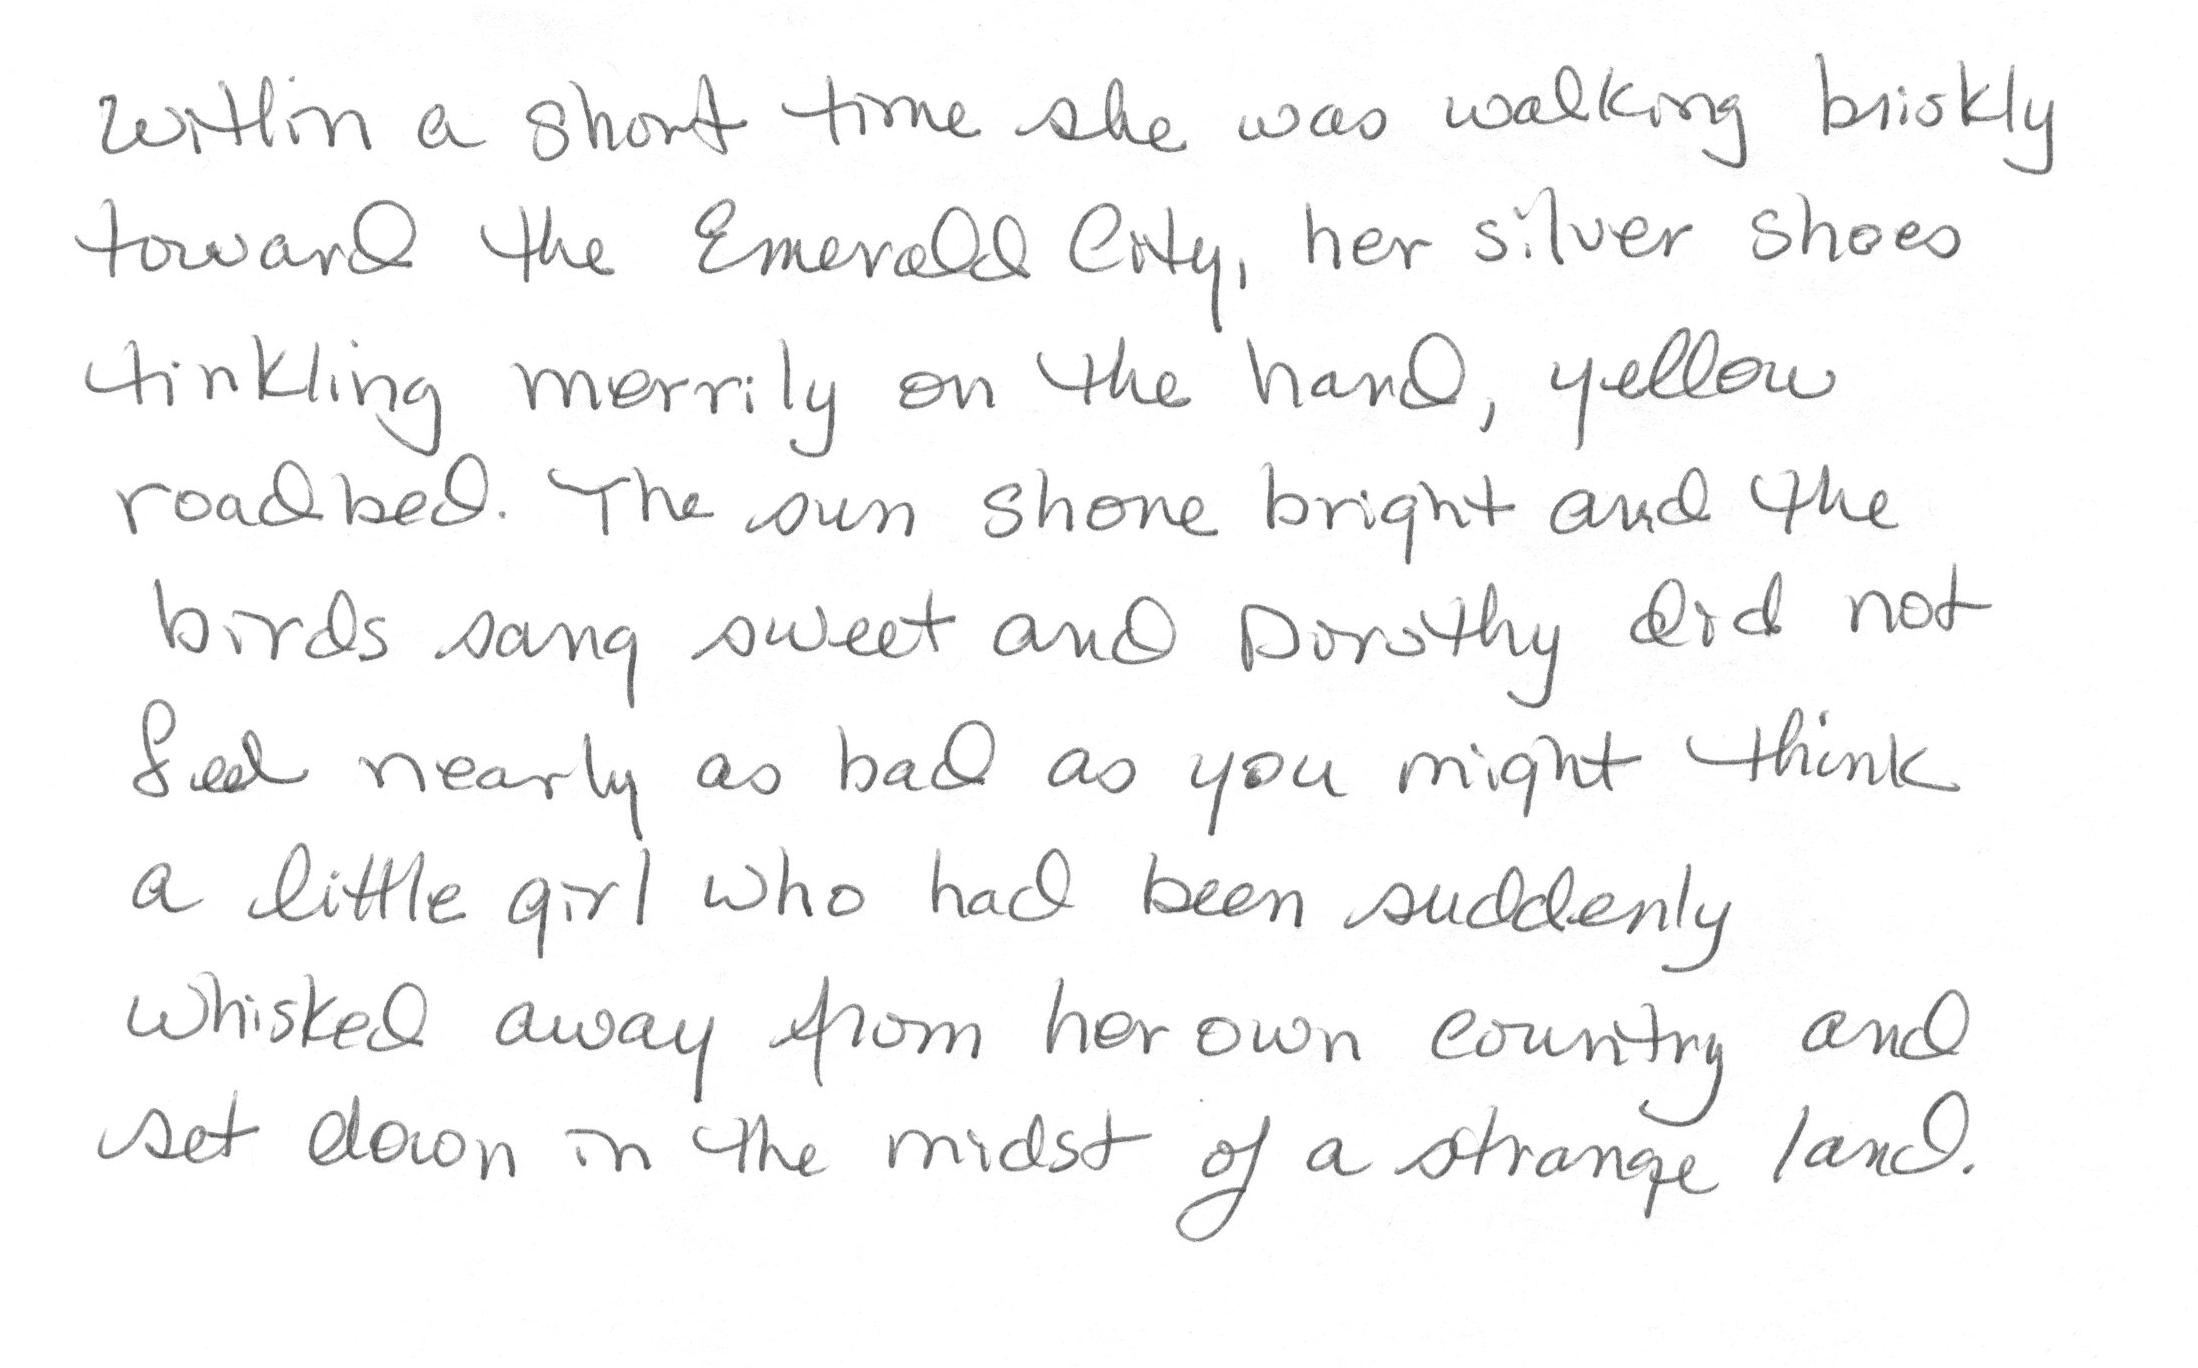 Within a short time she was walking briskly
toward the Emerald City, her silver shoes
tinkling merrily on the hard, yellow
roadbed. The sun shone bright and the
birds sang sweet and Dorothy did not
feel nearly as bad as you might think
a little girl who had been suddenly
whisked away from her own country and
set down in the midst of a strange land.